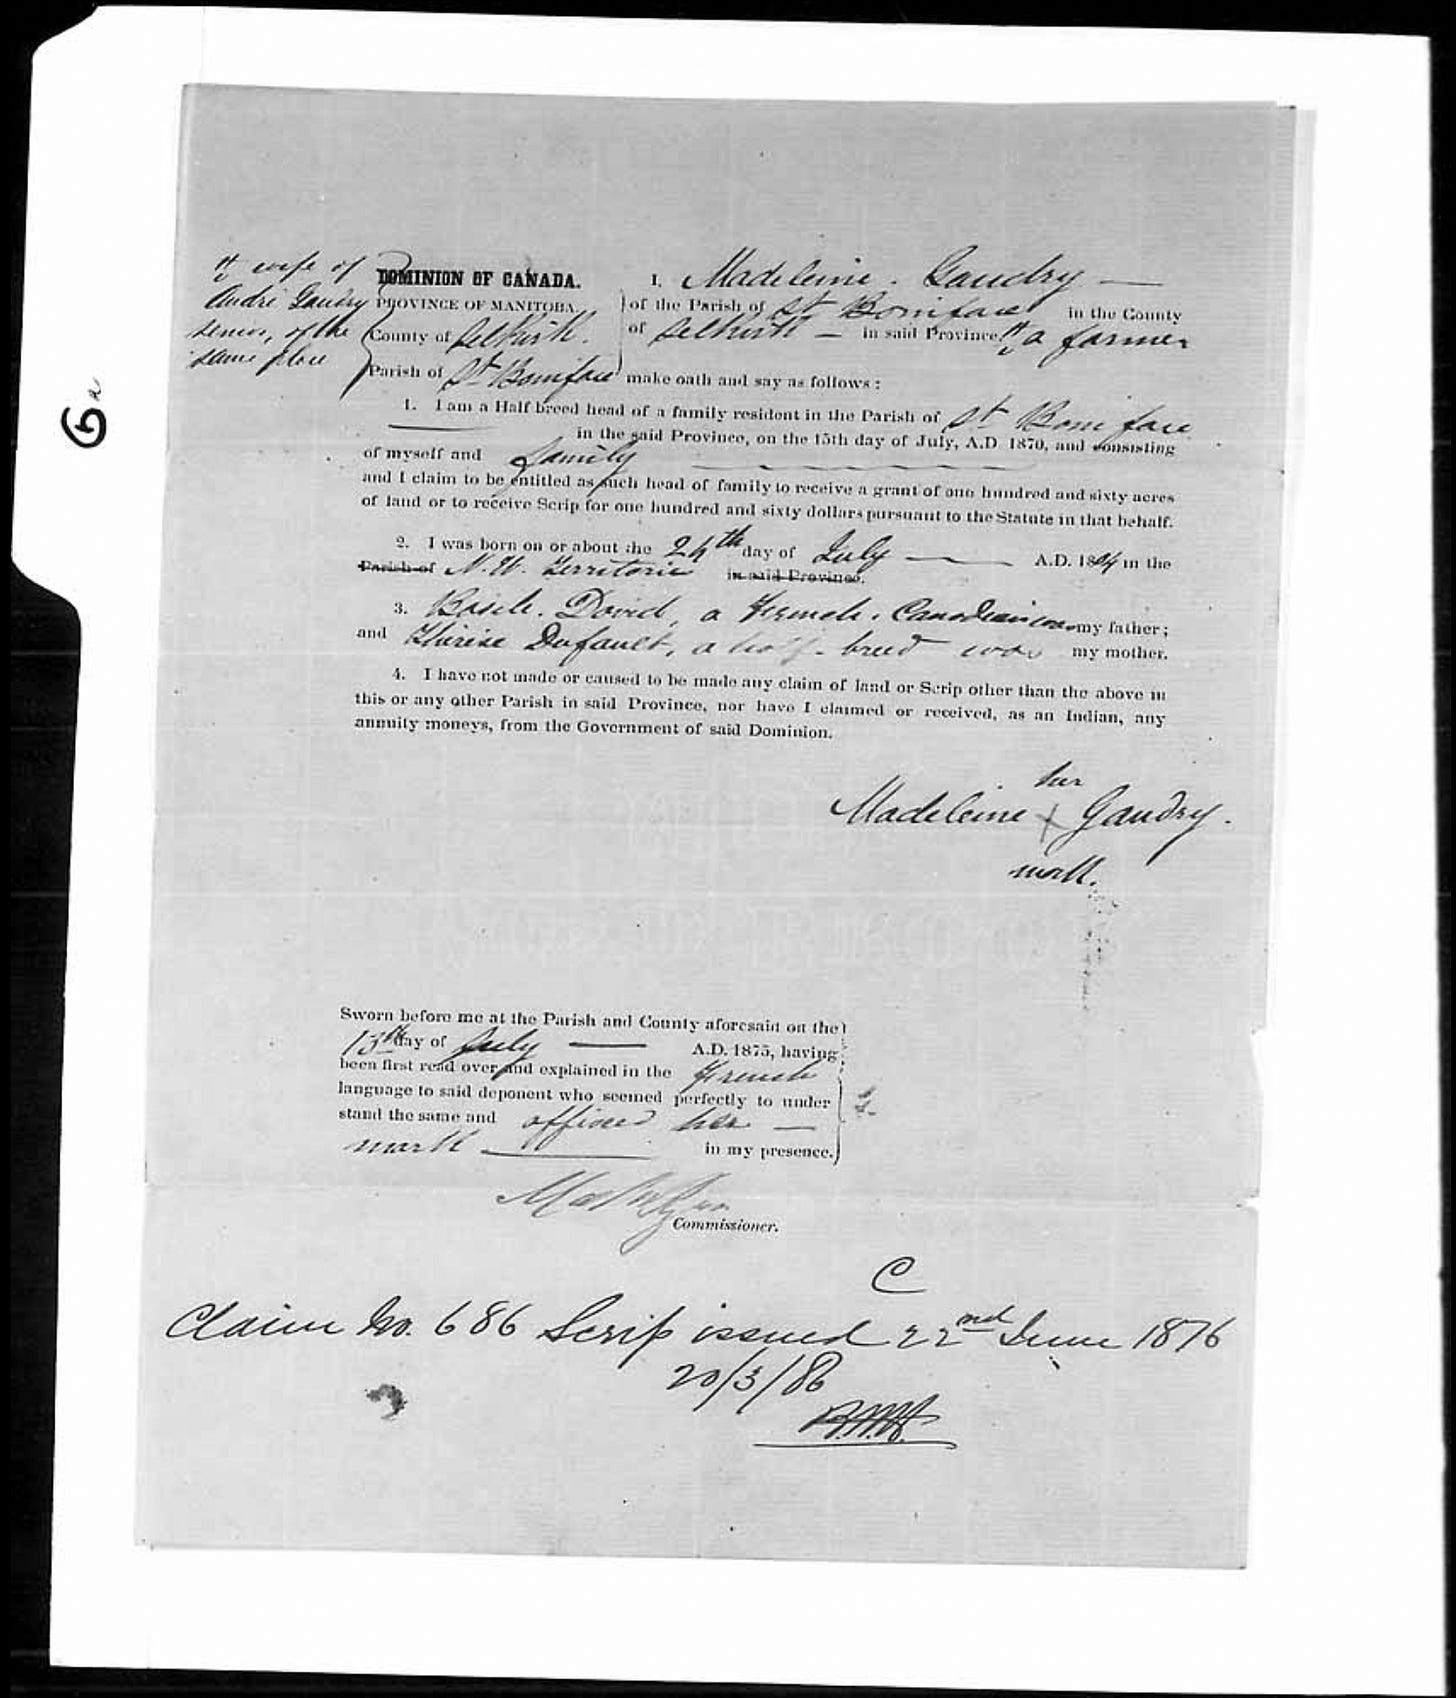 # wife of
André Gaudry
senior, of the
same place
DOMINION OF CANADA.
PROVINCE OF MANITOBA.
County of Selkirk.
Parish of St Boniface
I, Madeleine Gaudry —
of the Parish of St Boniface in the County
of Selkirk — in said Province # a farmer
make oath and say as follows :
1. I am a Half breed head of a family resident in the Parish of St Boniface
in the said Province, on the 15th day of July, A.D 1870, and consisting
of myself and family
and I claim to be entitled as such head of family to receive a grant of one hundred and sixty acres
of land or to receive Scrip for one hundred and sixty dollars pursuant to the Statute in that behalf.
2. I was born on or about the 24th day of July — A.D. 1804 in the
Parish of N.W. Territorie in said Province.
3. Basile David, a French Canadian was my father;
and Thérèse Dufault, a half-breed was my mother.
4. I have not made or caused to be made any claim of land or Scrip other than the above in
this or any other Parish in said Province, nor have I claimed or received, as an Indian, any
annuity moneys, from the Government of said Dominion.
her
Madeleine x Gaudry.
mark.
Sworn before me at the Parish and County aforesaid on the
13th day of July — A.D. 1875, having
been first read over and explained in the French
language to said deponent who seemed perfectly to under
stand the same and affixed her —
mark — in my presence.
Commissioner.
C
Claim No. 686 Scrip issued 22nd June 1876
20/3/86
6a